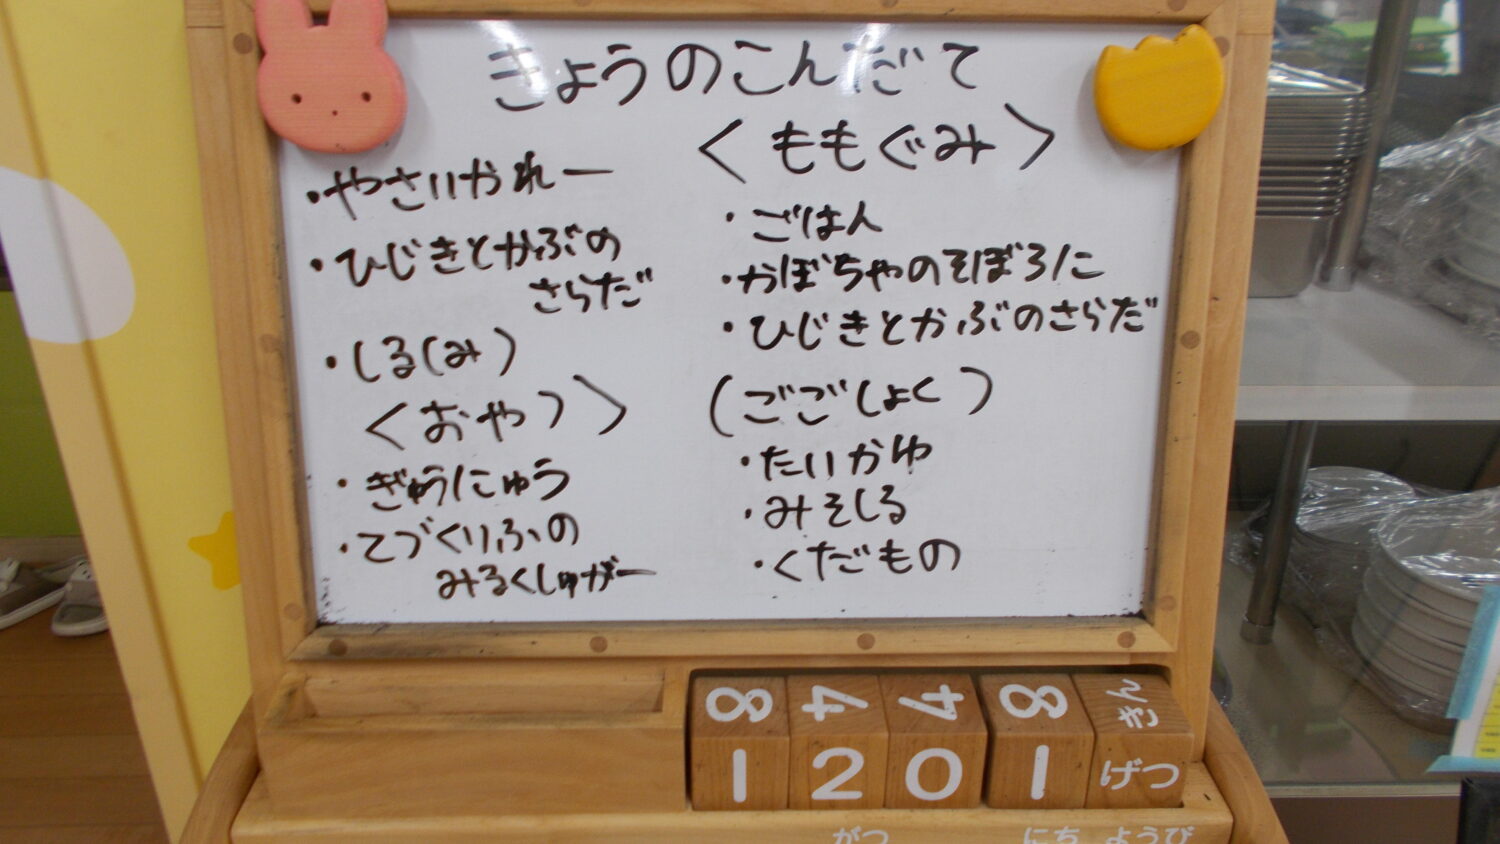 きょうのこんだて
・やさいかれー
・ひじきとかぶの
さらだ
・しる(み)
<おやつ>
・ぎゅうにゅう
・てづくりふの
みるくしゅがー
<ももぐみ>
・ごはん
・かぼちゃのそぼろに
・ひじきとかぶのさらだ
(ごごしょく)
・たいかゆ
・みそしる
・くだもの
8 4 4 8 きん
1 2 0 1 げつ
がつ にち ようび